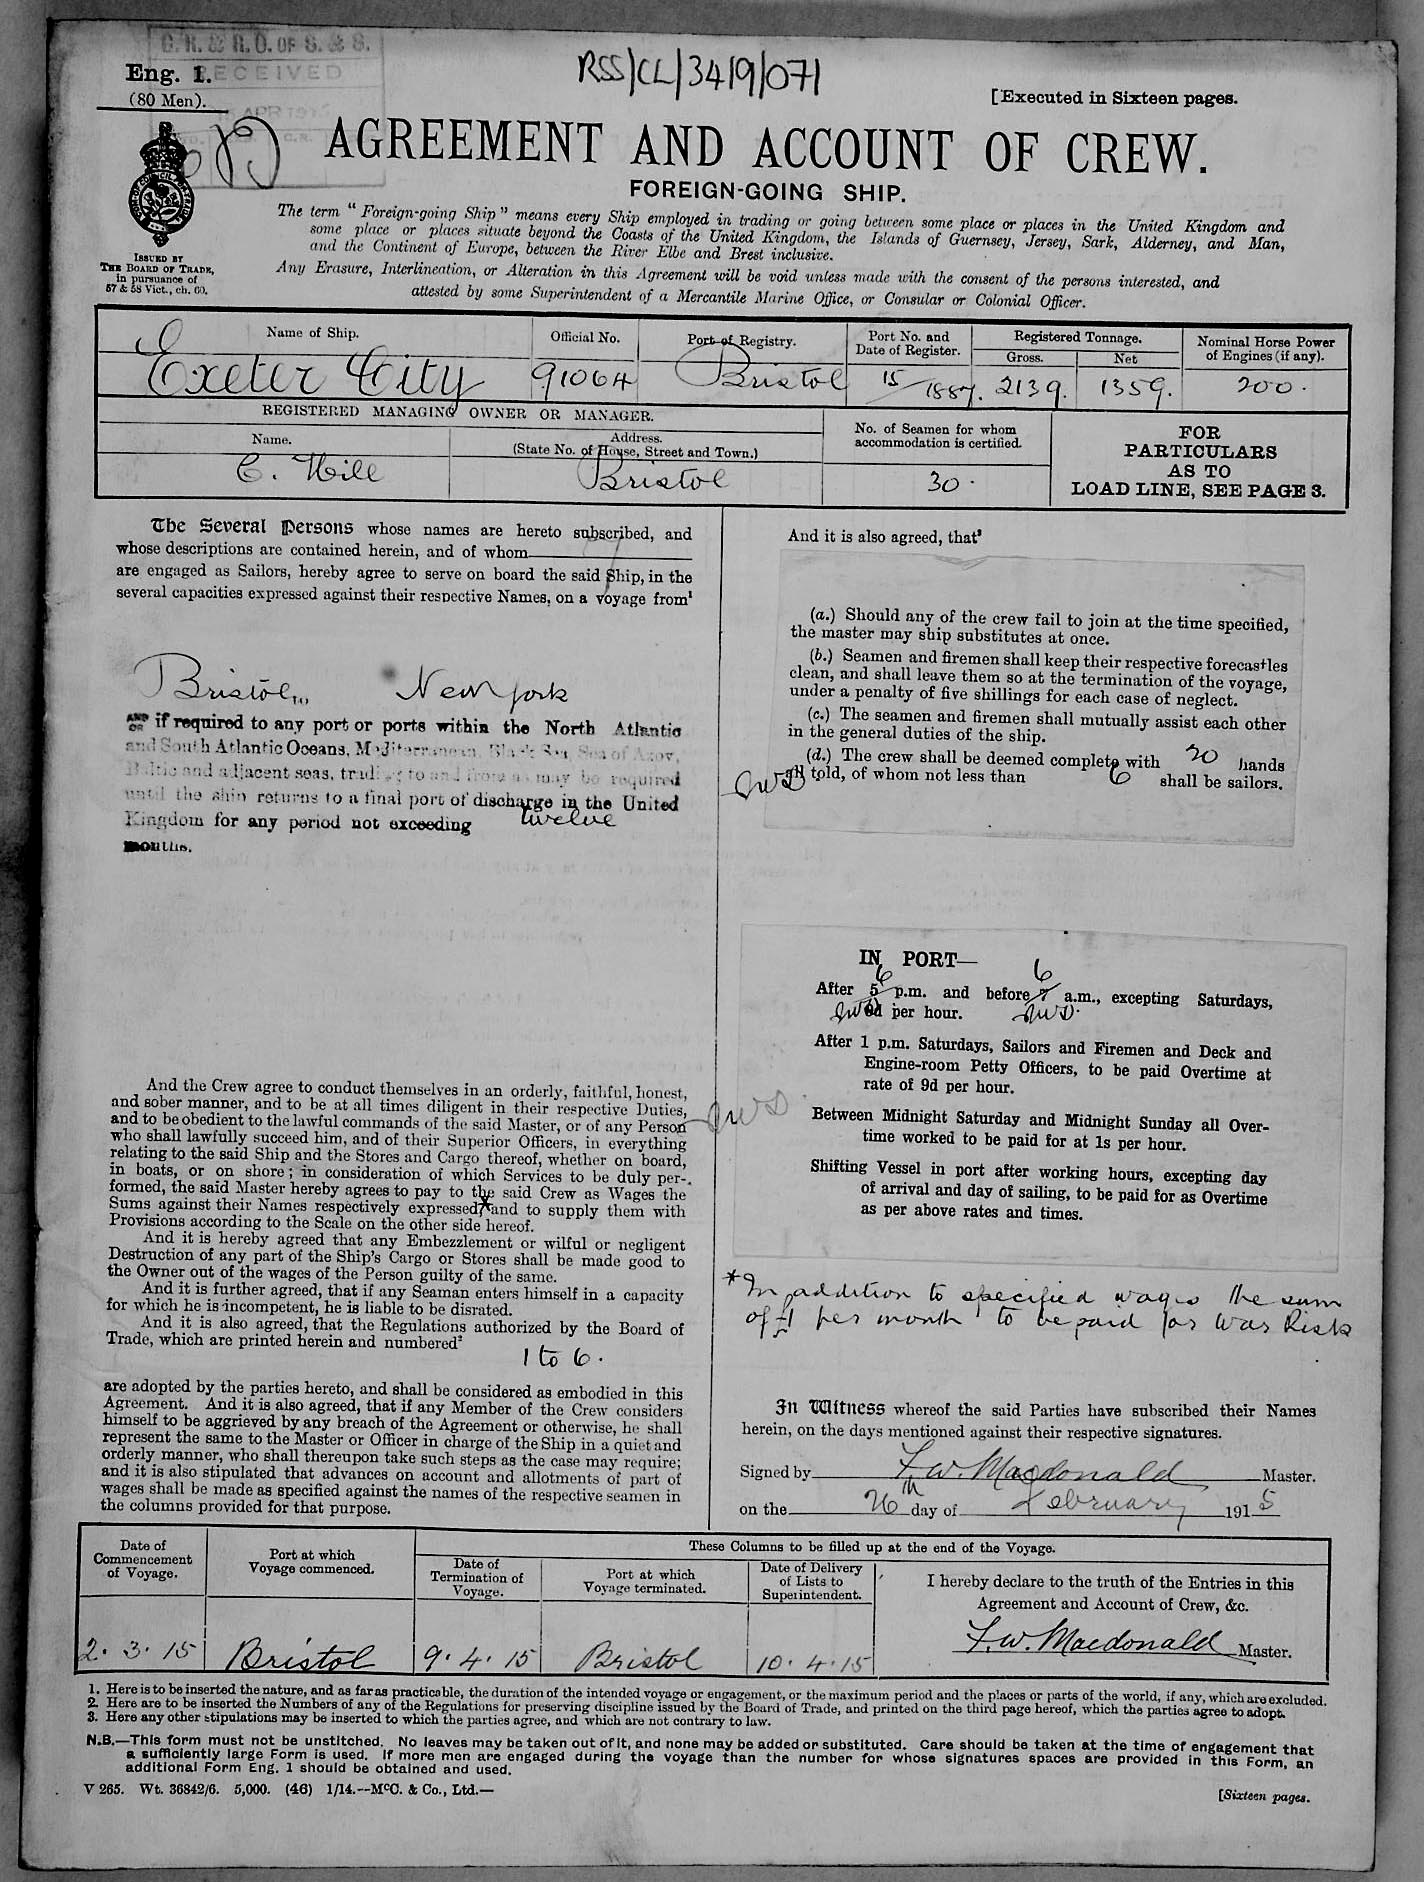 C. R. & R. O. OF S. & S.
RECEIVED
APR 191
C.R.
RSS/CL/3419/071
Eng. 1.
(80 Men).
[Executed in Sixteen pages.
AGREEMENT AND ACCOUNT OF CREW.
FOREIGN-GOING SHIP.
ISSUED BY
THE BOARD OF TRADE,
in pursuance of
57 & 58 Vict., ch. 60.
The term "Foreign-going Ship" means every Ship employed in trading or going between some place or places in the United Kingdom and
some place or places situate beyond the Coasts of the United Kingdom, the Islands of Guernsey, Jersey, Sark, Alderney, and Man,
and the Continent of Europe, between the River Elbe and Brest inclusive.
Any Erasure, Interlineation, or Alteration in this Agreement will be void unless made with the consent of the persons interested, and
attested by some Superintendent of a Mercantile Marine Office, or Consular or Colonial Officer.
Name of Ship. Official No. Port of Registry. Port No. and Date of Register. Registered Tonnage. Gross. Net Nominal Horse Power of Engines (if any).
Exeter City 91064 Bristol 15/1887. 2139. 1359. 200.
REGISTERED MANAGING OWNER OR MANAGER.
Name. Address. (State No. of House, Street and Town.) No. of Seamen for whom accommodation is certified.
C. Hill Bristol 30.
FOR
PARTICULARS
AS TO
LOAD LINE, SEE PAGE 3.
The Several Persons whose names are hereto subscribed, and
whose descriptions are contained herein, and of whom 7
are engaged as Sailors, hereby agree to serve on board the said Ship, in the
several capacities expressed against their respective Names, on a voyage from¹
Bristol, to New York
AND OR if required to any port or ports within the North Atlantic
and South Atlantic Oceans, Mediterranean, Black Sea, Sea of Azov,
Baltic and adjacent seas, trading to and from as may be required
until the ship returns to a final port of discharge in the United
Kingdom for any period not exceeding twelve
months.
And the Crew agree to conduct themselves in an orderly, faithful, honest,
and sober manner, and to be at all times diligent in their respective Duties,
and to be obedient to the lawful commands of the said Master, or of any Person
who shall lawfully succeed him, and of their Superior Officers, in everything
relating to the said Ship and the Stores and Cargo thereof, whether on board,
in boats, or on shore; in consideration of which Services to be duly per-
formed, the said Master hereby agrees to pay to the said Crew as Wages the
Sums against their Names respectively expressed,* and to supply them with
Provisions according to the Scale on the other side hereof.
And it is hereby agreed that any Embezzlement or wilful or negligent
Destruction of any part of the Ship's Cargo or Stores shall be made good to
the Owner out of the wages of the Person guilty of the same.
And it is further agreed, that if any Seaman enters himself in a capacity
for which he is incompetent, he is liable to be disrated.
And it is also agreed, that the Regulations authorized by the Board of
Trade, which are printed herein and numbered²
1 to 6.
are adopted by the parties hereto, and shall be considered as embodied in this
Agreement. And it is also agreed, that if any Member of the Crew considers
himself to be aggrieved by any breach of the Agreement or otherwise, he shall
represent the same to the Master or Officer in charge of the Ship in a quiet and
orderly manner, who shall thereupon take such steps as the case may require;
and it is also stipulated that advances on account and allotments of part of
wages shall be made as specified against the names of the respective seamen in
the columns provided for that purpose.
And it is also agreed, that³
(a.) Should any of the crew fail to join at the time specified,
the master may ship substitutes at once.
(b.) Seamen and firemen shall keep their respective forecastles
clean, and shall leave them so at the termination of the voyage,
under a penalty of five shillings for each case of neglect.
(c.) The seamen and firemen shall mutually assist each other
in the general duties of the ship.
(d.) The crew shall be deemed complete with 20 hands
all told, of whom not less than 6 shall be sailors.
IN PORT—
6 6
After 5 p.m. and before 7 a.m., excepting Saturdays,
9d per hour.
After 1 p.m. Saturdays, Sailors and Firemen and Deck and
Engine-room Petty Officers, to be paid Overtime at
rate of 9d per hour.
Between Midnight Saturday and Midnight Sunday all Over-
time worked to be paid for at 1s per hour.
Shifting Vessel in port after working hours, excepting day
of arrival and day of sailing, to be paid for as Overtime
as per above rates and times.
*In addition to specified wages the sum
of £1 per month to be paid for War Risk
In Witness whereof the said Parties have subscribed their Names
herein, on the days mentioned against their respective signatures.
Signed by F. W. Macdonald Master.
on the 26th day of February 1915
Date of Commencement of Voyage. Port at which Voyage commenced. These Columns to be filled up at the end of the Voyage.
Date of Termination of Voyage. Port at which Voyage terminated. Date of Delivery of Lists to Superintendent.
I hereby declare to the truth of the Entries in this
Agreement and Account of Crew, &c.
2. 3. 15 Bristol 9. 4. 15 Bristol 10. 4. 15 F. W. Macdonald Master.
1. Here is to be inserted the nature, and as far as practicable, the duration of the intended voyage or engagement, or the maximum period and the places or parts of the world, if any, which are excluded.
2. Here are to be inserted the Numbers of any of the Regulations for preserving discipline issued by the Board of Trade, and printed on the third page hereof, which the parties agree to adopt.
3. Here any other stipulations may be inserted to which the parties agree, and which are not contrary to law.
N.B.—This form must not be unstitched. No leaves may be taken out of it, and none may be added or substituted. Care should be taken at the time of engagement that
a sufficiently large Form is used. If more men are engaged during the voyage than the number for whose signatures spaces are provided in this Form, an
additional Form Eng. 1 should be obtained and used.
V 265. Wt. 36842/6. 5,000. (46) 1/14.--McC. & Co., Ltd.—
[Sixteen pages.